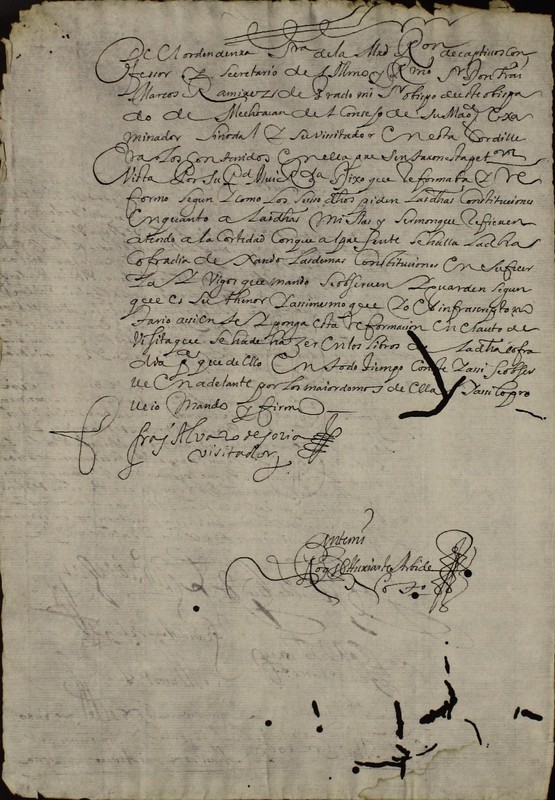 de el orden de nra Sra de la Med Ron de captivos con
fesor y Secretario de el Illmo y Rmo Sr Don frai
Marcos Ramirez de Prado mi Sr obispo de este obispa
do de Mechoacan del Conso de su Magd exa
minador sinodal y su visitador en esta cordille
ra los contenidos en ella
vista por su Pd Mui Rda dixo que reformaba y re
formo segun y como los suso dhos piden las dhas constituciones
en quanto a las dhas missas y sermon que refieren
atendo a la cortedad con que al presente se halla la dha
cofradia dexando las demas constituciones en su fuer
sa y vigor que mando se observen y guarden segun
que es su thenor y assimesmo que yo el infrascripto no
tario assiente y ponga esta reformacion en el auto de
visita que se ha de hazer en los libros de la dha cofra
dia pa que de ello en todo tiempo conste y assi se obser
ve en adelante por los maiordomos de ella y assi lo pro
veio mando y firmo
fray Alvaro de soria
visitador
Ante mi